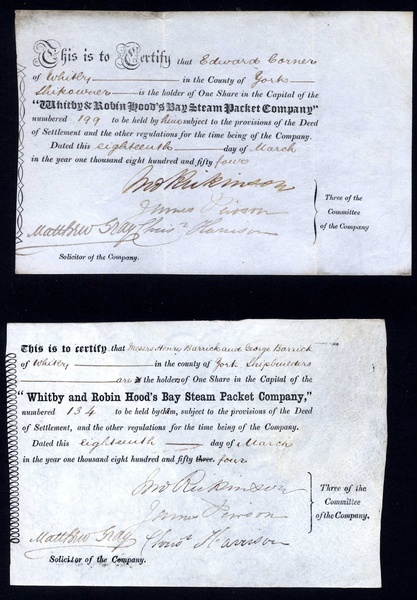 This is to Certify that Edward Corner
of Whitby in the County of York
Shipowner is the holder of One Share in the Capital of the
"Whitby & Robin Hood's Bay Steam Packet Company"
numbered 199 to be held by him subject to the provisions of the Deed
of Settlement and the other regulations for the time being of the Company.
Dated this eighteenth day of March
in the year one thousand eight hundred and fifty four
Jno Rickinson
James Pierson
Matthew Gray Chrisr Harrison
Three of the
Committee
of the Company
Solicitor of the Company.
This is to certify that Messrs Henry Barrick and George Barrick
of Whitby in the county of York Shipbuilders
are the holders of One Share in the Capital of the
"Whitby and Robin Hood's Bay Steam Packet Company,"
numbered 134 to be held by them, subject to the provisions of the Deed
of Settlement, and the other regulations for the time being of the Company.
Dated this eighteenth day of March
in the year one thousand eight hundred and fifty three. four
Jno Rickinson
James Pierson
Matthew Gray Chrisr Harrison
Three of the
Committee
of the Company.
Solicitor of the Company.